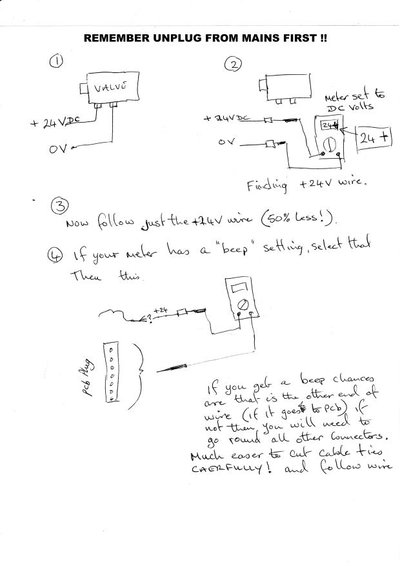 REMEMBER UNPLUG FROM MAINS FIRST !!
1
VALVE
+ 24V DC
0V
2
Meter set to
DC Volts
+ 24V DC
24+
24 +
0V
Finding +24V wire.
3
Now follow just the +24V wire (50% less!).
4 If your meter has a "beep" setting, select that
Then this
+24
?
pcb plug
If you get a beep chances
are that is the other end of
wire (if it goes to pcb) if
not then, you will need to
go round all other connectors.
Much easier to cut cable ties
CAERFULLY! and follow wire